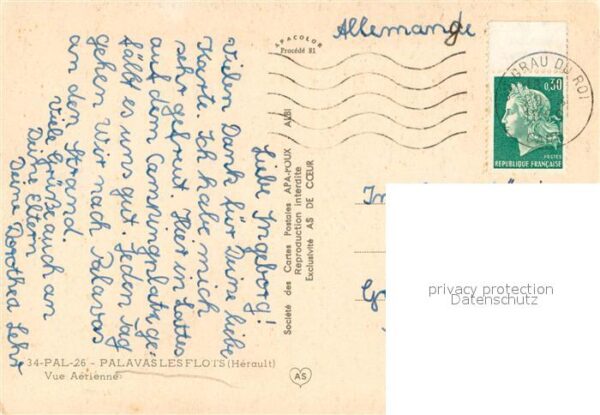 Liebe Ingeborg!
Vielen Dank für Deine liebe
Karte. Ich habe mich
sehr gefreut. Hier in Lattes
auf dem Campingplatz ge-
fällt es uns gut. Jeden Tag
gehen wir nach Palavas
an den Strand.
Viele Grüße auch an
Deine Eltern
Deine Dorothea
34-PAL-26 - PALAVAS LES FLOTS (Hérault)
Vue Aérienne
APACOLOR
Procédé 81
Société des Cartes Postales APA-POUX ALBI
Reproduction interdite
Exclusivité AS DE CŒUR
AS
Allemagne
GRAU DU ROI
0,30
POSTES
REPUBLIQUE FRANÇAISE
privacy protection
Datenschutz